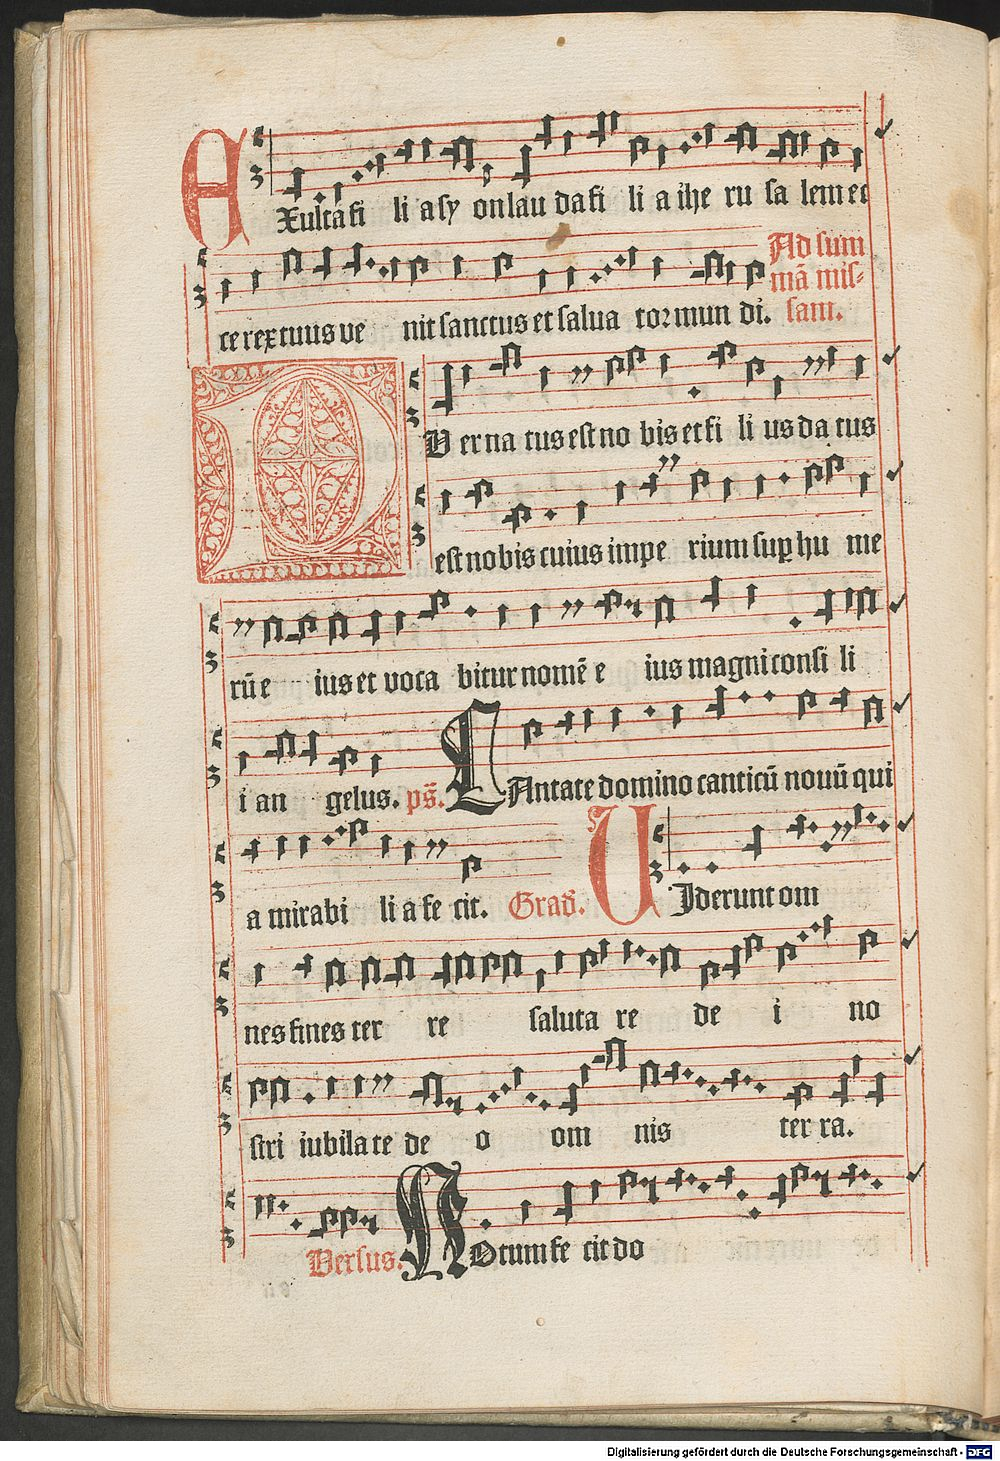 EXulta fi li a sy on lau da fi li a ihe ru sa lem et
ce rex tuus ve nit sanctus et salua tor mun di. Ad sum
mā mis-
sam.
PUer na tus est no bis et fi li us da tus
est nobis cuius impe rium suꝑ hu me
rū e ius et voca bitur nomē e ius magni consi li
i an gelus. ps̄. CAntate domino canticū novū qui
a mirabi li a fe cit. Grad̄. UIderunt om
nes fines ter re saluta re de i no
stri iubilate de o om nis ter ra.
Versus. NOtum fe cit do
Digitalisierung gefördert durch die Deutsche Forschungsgemeinschaft - DFG